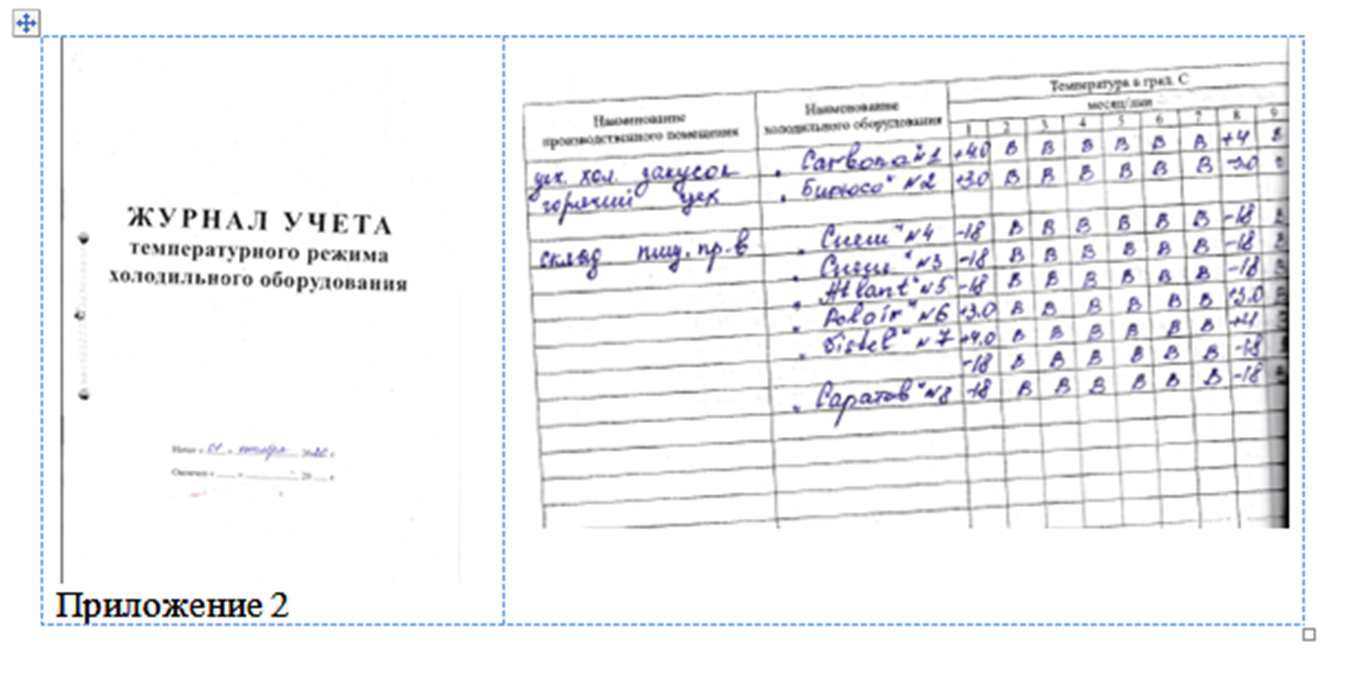 ЖУРНАЛ УЧЕТА
температурного режима
холодильного оборудования
Начат « 01 » октября 2020 г.
Окончен « ___ » ________ 20 __ г.
Приложение 2
Наименование производственного помещения
Наименование холодильного оборудования
Температура в град. С
месяц/дни
1 2 3 4 5 6 7 8 9
цех. хол. закусок „Carboma" №1 +4.0 В В В В В В +4
горячий цех „Бирюса" №2 +3.0 В В В В В В
склад пищ. пр-в №4 -18 В В В В В В -18
№3 -18 В В В В В В -18
„Atlant" №5 -18 В В В В В В -18
„Polair" №6 +3.0 В В В В В В +3.0
№7 +4.0 В В В В В В +4
-18 В В В В В В -18
„Саратов" №8 -18 В В В В В В -18